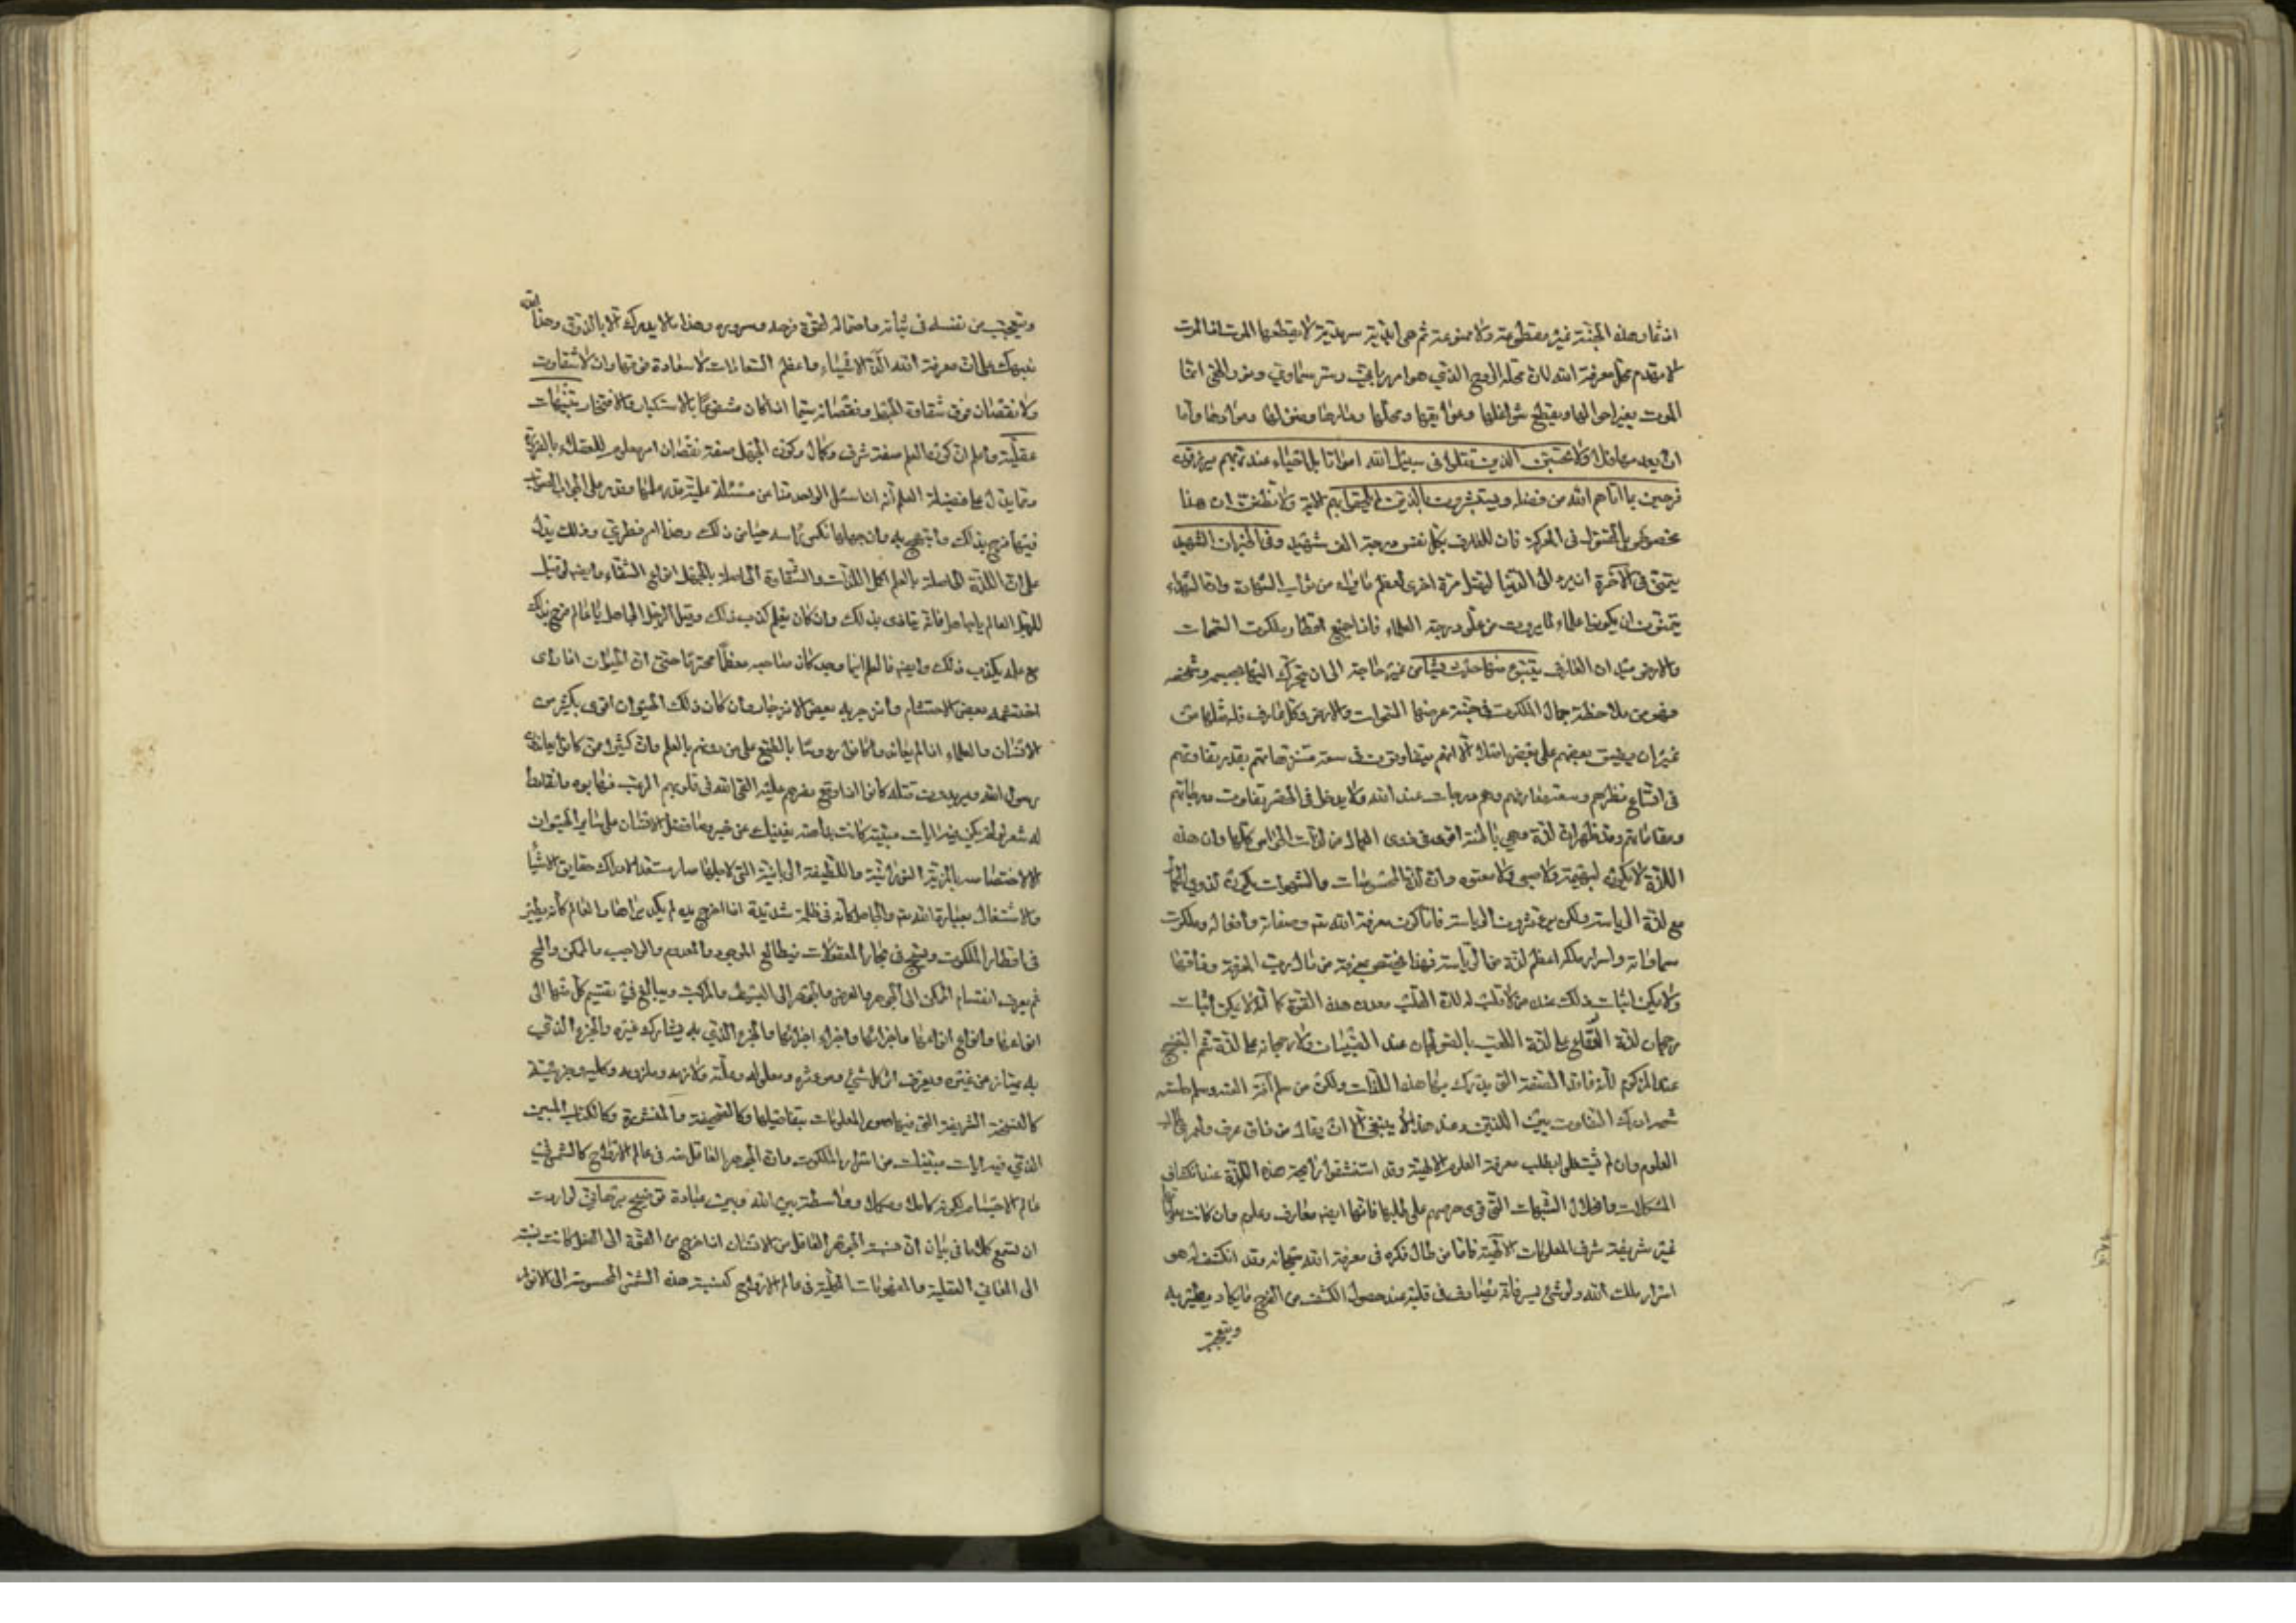 اثمار هذه الجنّة غير مقطوعة ولا ممنوعة ثم هي ابديّة سرمديّة لا يقطعها الموت اذ الموت
لا يهدم محلّ معرفة الله لان محلّه الروح الذي هو امر ربانيّ وسرّ سماوي وانّما
الموت يغير احوالها ويقطع شواغلها وعوايقها
ولا تحسبنّ الذين قتلوا فى سبيل الله امواتا بل احياء عند ربّهم يرزقون
فرحين بما آتاهم الله من فضله ويستبشرون بالذين لم يلحقوا بهم الاية ولا تظنّن ان هذا
مخصوص بالمقتول فى المعركة فان للعارف بكلّ نفس درجة الف شهيد وفى الخبر ان الشهيد
يتمنّى فى الآخرة ان يردّ الى الدّنيا ليقتل مرّة اخرى لعظم ما يراه من ثواب الشّهادة وان الشهداء
يتمنّون ان يكونوا علماء لما يرون من علوّ درجة العلماء فاذا جميع اقطار ملكوت السّموات
والارض ميدان العارف يتبوّء منها حيث يشاء من غير حاجة الى ان يتحرّك اليها بجسمه وشخصه
فهو من ملاحظة جمال الملكوت فى جنّة عرضها السّموات والارض وكلّ عارف فله مثلها من
غير ان يضيق بعضهم على بعض اصلا الّا انّهم يتفاوتون فى سعة متنزّهاتهم بقدر تفاوتهم
فى اتّساع نظرهم وسعة معارفهم وهم درجات عند الله ولا يدخل فى الحصر تفاوت درجاتهم
ومقاماتهم وقد ظهر ان لذّة وهي باطنة اقوى فى ذوى الكمال من لذّات الحواس كلّها وان هذه
اللذّة لا يكون لبهيمة ولا صبي ولا معتوه وان لذّة المحسوسات والشّهوات يكون لذوي الكمال
مع لذّة الرياسة ولكن يؤثرون الرياسة فامّا كون معرفة الله تع وصفاته وافعاله وملكوت
سماواته واسرار ملكه اعظم لذّة من الرّياسة فهذا يختص بمعرفته من نال رتبة المعرفة وذاقها
ولا يمكن اثبات ذلك عند من لا قلب له لان القلب معدن هذه القوّة كما انّه لا يمكن اثبات
رجحان لذّة الوقاع على لذّة اللعب بالصّولجان عند الصّبيان ولا رجحانه على لذّة شمّ البنفسج
عند المزكوم لانّه فاقد الصّفة التى يدرك بها هذه اللذّات ولكن من سلم من آفة العنّة وسلم حاسّة
شمّه ادرك التفاوت بين اللذتين وعند هذا لا يبقى الّا ان يقال من ذاق عرف
العلوم وان لم يشتغلوا بطلب معرفة العلوم الالهيّة وقد استنشقوا رايحة هذه اللذّة عند انكشاف
المشكلات وانحلال الشّبهات التّي قوى حرصهم على طلبها فانّها ايضا معارف وعلوم وان كانت
غير شريفة شرف المعلومات الالهيّة فامّا من طال فكره فى معرفة الله سبحانه وقد انكشف له من
اسرار ملك الله ولو شئ يسير فانّه يصادف فى قلبه عند حصول الكشف من الفرح ما يكاد يطير به
ويتعجّب
ويتعجّب من نفسه فى ثباته واحتماله لقوّة فرحه وسروره وهذا ممّا لا يدرك الّا بالذّوق وهذا القدر
ينبهك على انّ معرفة الله الذّ الاشياء واعظم السّعادات لا سعادة فوقها وان لا شقاوت
ولا نقصان فوق شقاوة الجهل ونقصانه سيّما اذا كان مشفوعا بالاستكبار والافتخار تنبيهات
عقليّة واعلم انّ كون العلم صفة شرف وكمال وكون الجهل صفة نقصان امر معلوم للعقلاء بالضرورة
وممّا يدلّ على فضيلة العلم انّه اذا سئل الواحد منّا عن مسئلة علميّة وقدر على الجواب الصّواب
فيها فرح بذلك وابتهج به وان جهلها نكس رأسه حياء من ذلك وهذا امر فطري وذلك يدل
على انّ اللذّة الحاصلة بالعلم اكمل اللذّات والشّقاوة الحاصلة بالجهل انواع الشّقاء وايضا لو قيل
للرجل العالم يا جاهل فانّه يتاذى بذلك وان كان يعلم كذب ذلك وقيل للرجل الجاهل يا عالم فرح بذلك
مع علمه بكذب ذلك وايضا فالعلم اينما وجد كان صاحبه معظّما محترما حتى ان الحيوان اذا رأى
احتشمه بعض الاحتشام وانزجر به بعض الانزجار وان كان ذلك الحيوان اقوى بكثير من
الانسان والعلماء اذا لم يعاندوا كانوا رؤسا بالطبع على من دونهم بالعلم وان كثيرا ممّن كانوا يعاندون
رسول الله ويريدون قتله كانوا اذا وقع بصرهم عليه القى الله فى قلوبهم الرعب فهابوه وانقادوا
له شعر لو لم يكن فيه آيات مبيّنة كانت بداهته تغنيك عن خبره وما فضل الانسان على سائر الحيوان
الا لاختصاصه بالمزيّة النورانيّة واللّطيفة الربّانيّة التى لاجلها صار مستعدا لادراك حقايق الاشيا
والاشتغال بعبادة الله تع والجاهل كأنّه فى ظلمة شديدة اذا اخرج يده لم يكد يراها والعالم كأنّه يطير
فى اقطار الملكوت ويسبح فى بحار المعقولات فيطالع الموجود والمعدوم والواجب والممكن والمح
ثم يعرف انقسام الممكن الى الجوهر والعرض والجوهر الى البسيط والمركب ويبالغ فى تقسيم كلّ منها الى
انواعها وانواع انواعها واجزائها واجزاء اجزائها والجزء الّذي به يشارك غيره والجزء الذي
به يمتاز عن غيره ويعرف اثر كل شئ ومؤثره ومعلوله وعلّته ولازمه وملزومه وكليه وجزئيّه
كالنسخة الشريفة التى فيها صور المعلومات بتفاصيلها وكالصّحيفة المنشورة وكالكتاب المبين
الذي فيه ايات مبيّنات من اسرار الملكوت وان الجوهر العاقل منه فى عالم الارواح كالشّمس فى
عالم الاجسام لكونه كاملا ومكملا وواسطة بين الله وبين عباده توضيح برهاني لو اردت
ان تسمع كلاما فى بيان انّ نسبة الجوهر العاقل من الانسان اذا خرج من القوّة الى الفعل كانت نسبته
الى المعاني العقلية والمفهومات الكلّية فى عالم الارواح كنسبة هذه الشمس المحسوسة الى الانوار